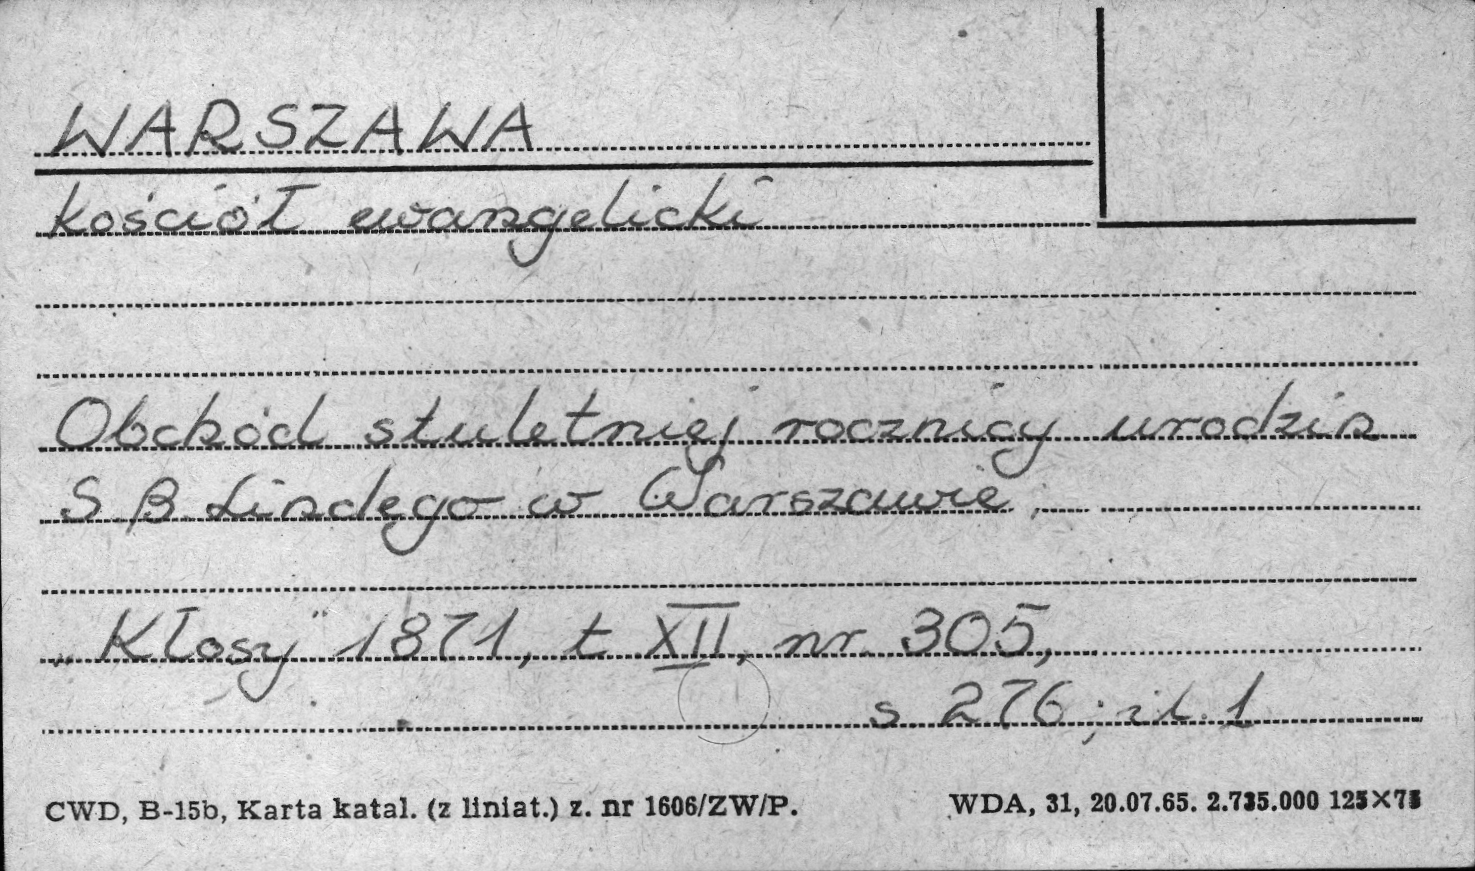 WARSZAWA
kościół ewangelicki
Obchód stuletniej rocznicy urodzin
S B Lindego w Warszawie,
„Kłosy" 1871, t XII, nr. 305,
s. 276; il. 1
CWD, B-15b, Karta katal. (z liniat.) z. nr 1606/ZW/P.
WDA, 31, 20.07.65. 2.735.000 125×75